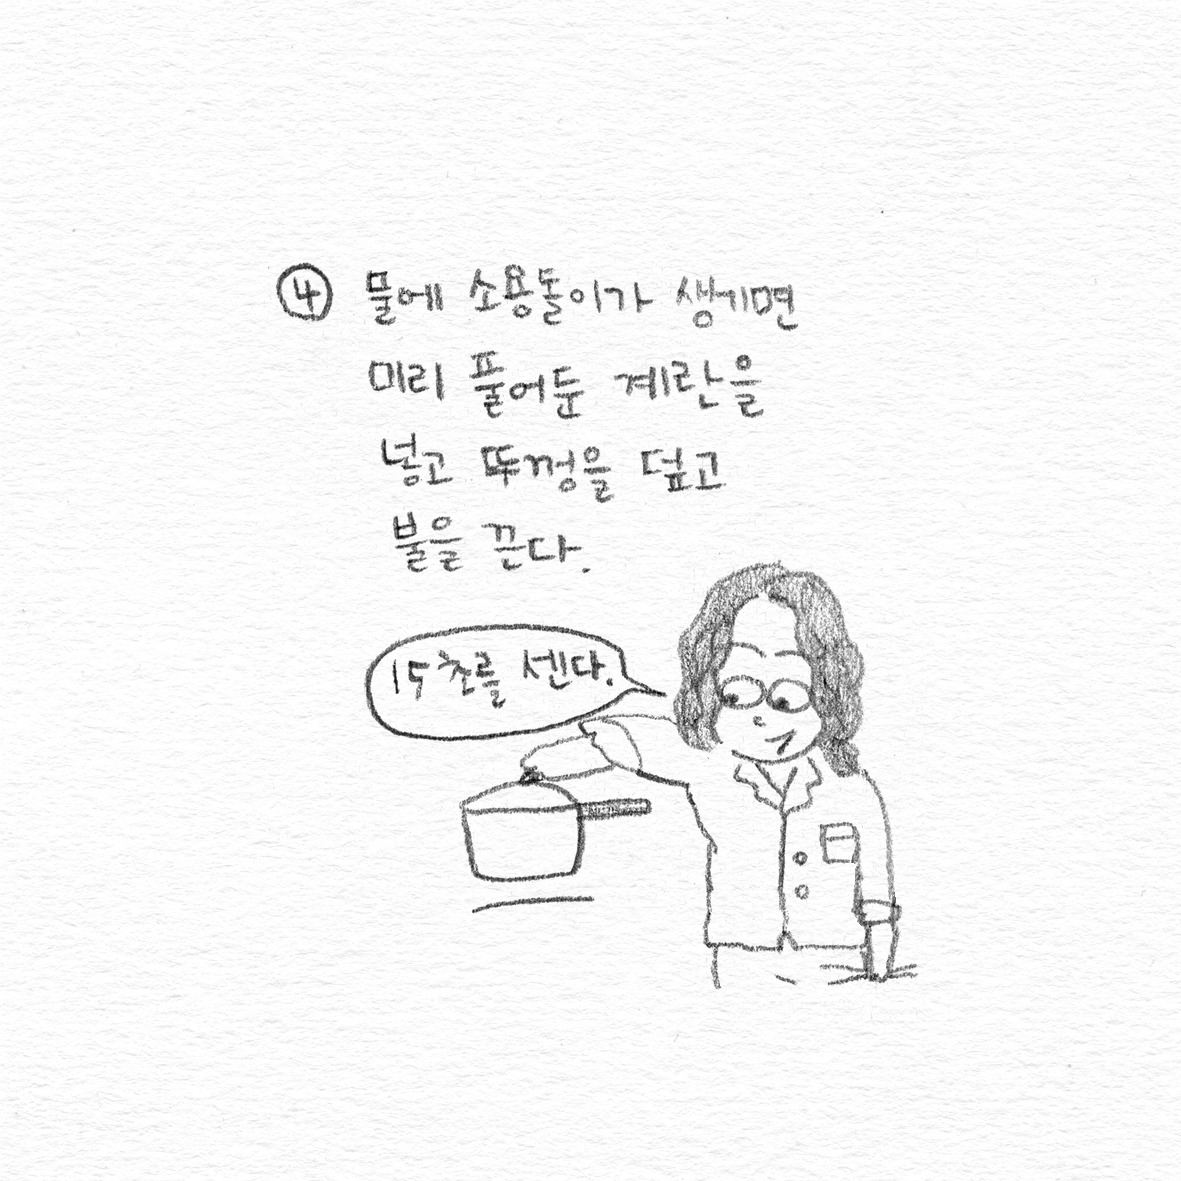 ④ 물에 소용돌이가 생기면
미리 풀어둔 계란을
넣고 뚜껑을 덮고
불을 끈다.
15초를 센다.